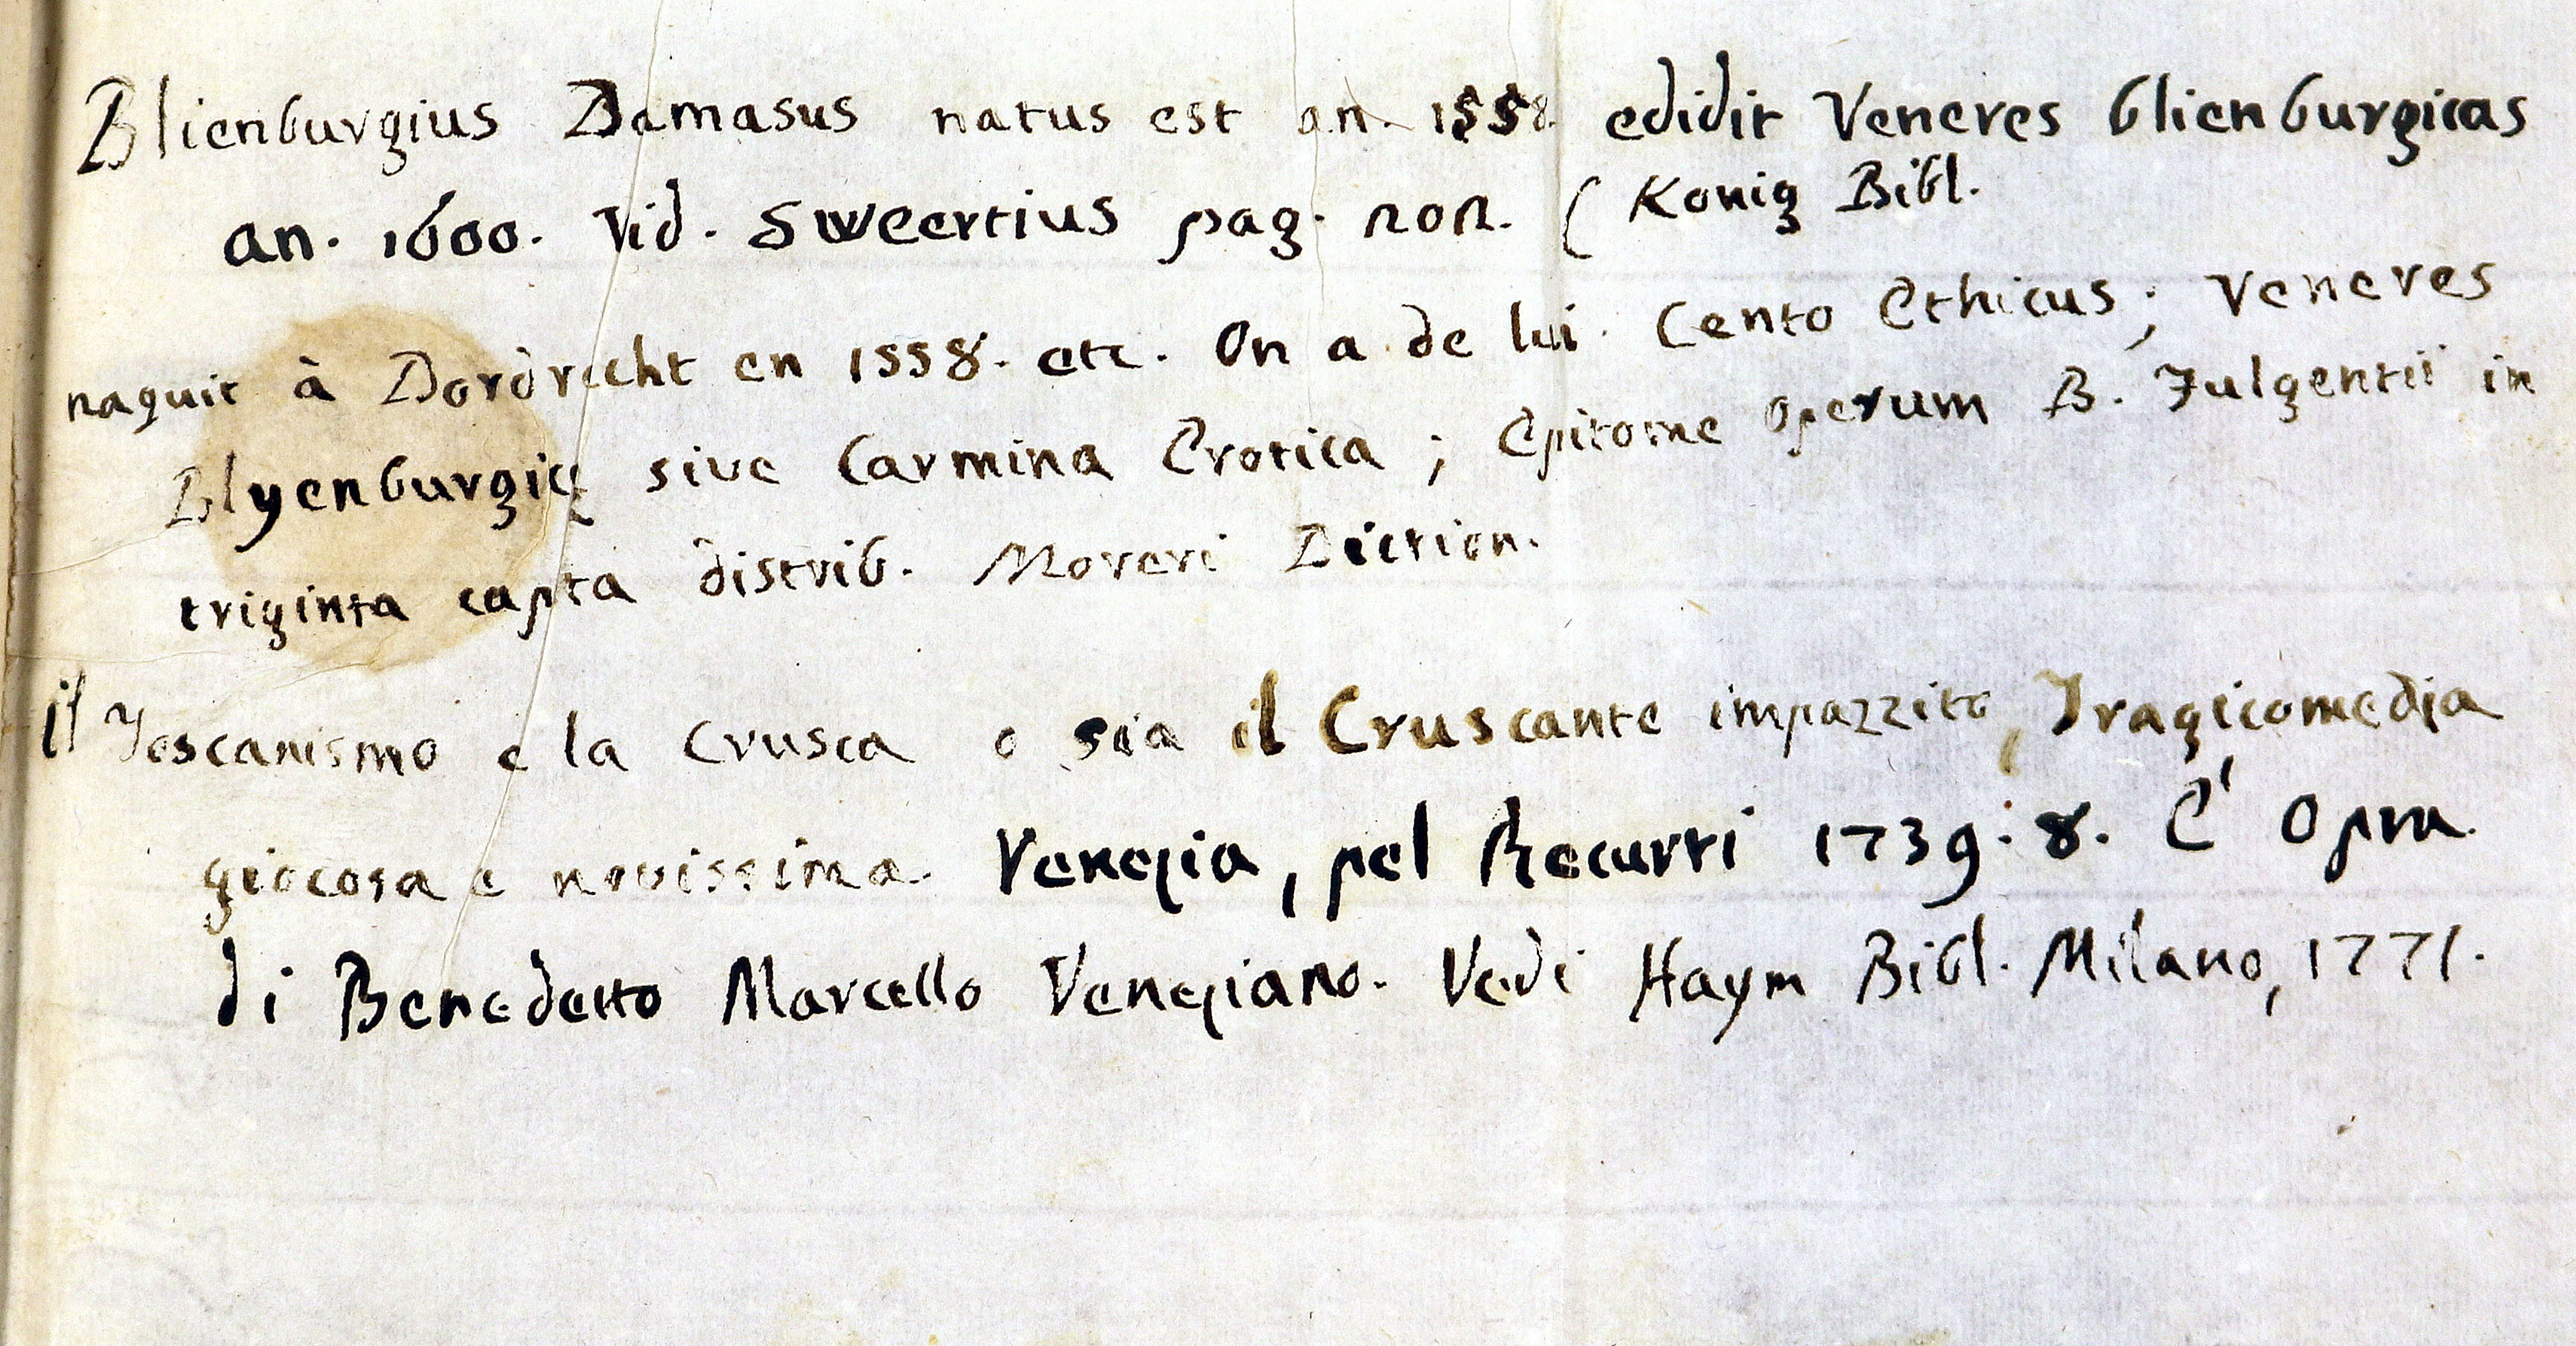 Blienburgius Damasus natus est an. 1558 edidit Veneres blienburgicas
an. 1600. Vid. Sweertius pag. 202. ( Konig Bibl.
naquit à Dordrecht en 1558. etc. On a de lui. Cento Ethicus; Veneres
Blyenburgicę sive Carmina Erotica ; Epitome Operum B. Fulgentii in
triginta capta distrib. Moreri Diction.
il Toscanismo e la Crusca o sia il Cruscante impazzito, Tragicomedia
giocosa e novissima. Venezia, pel Recurti 1739. 8. E' Opra
di Benedetto Marcello Veneziano. Vedi Haym Bibl. Milano, 1771.